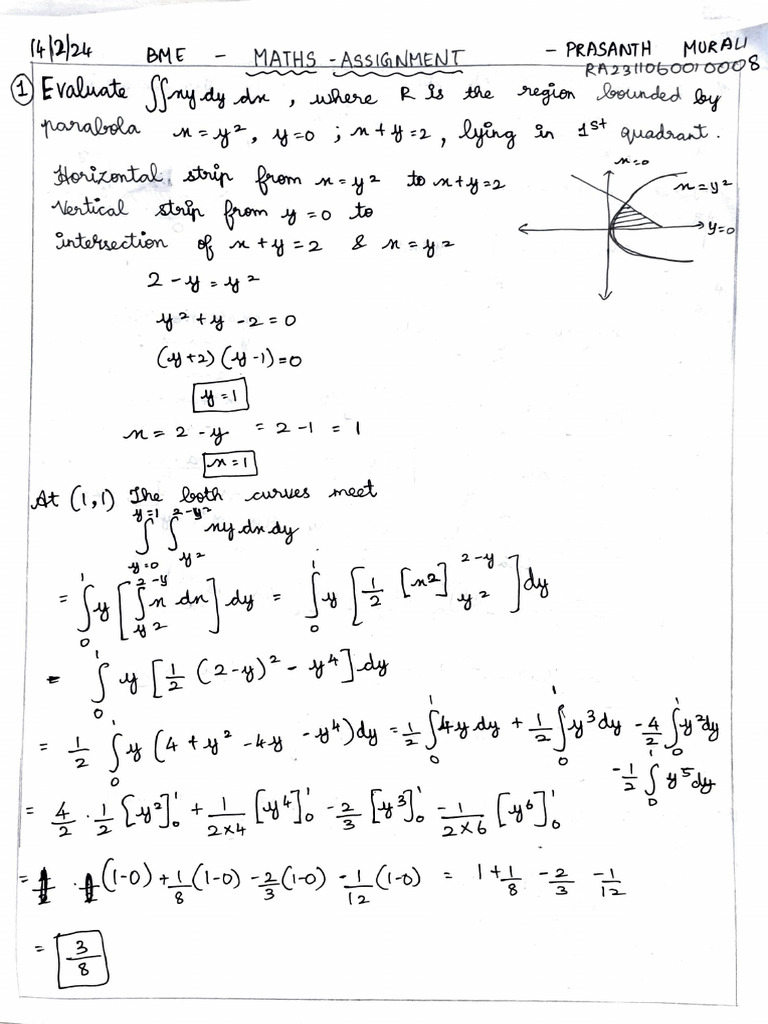 14/2/24 BME - MATHS - ASSIGNMENT - PRASANTH MURALI
RA2311060010008
① Evaluate ∬xy dy dx , where R is the region bounded by
parabola x = y², y=0 ; x+y=2, lying in 1st quadrant.
x=0
Horizontal strip from x=y² to x+y=2
x=y²
Vertical strip from y=0 to
y=0
intersection of x+y=2 & x=y²
2-y=y²
y²+y-2=0
(y+2)(y-1)=0
y=1
x= 2-y = 2-1 = 1
x=1
At (1,1) The both curves meet
∫_{y=0}^{y=1} ∫_{y²}^{2-y²} xy dx dy
= ∫_0^1 y [∫_{y²}^{2-y} x dx] dy = ∫_0^1 y [1/2 [x²]_{y²}^{2-y}] dy
= ∫_0^1 y [1/2 (2-y)² - y⁴] dy
= 1/2 ∫_0^1 y (4+y²-4y-y⁴) dy = 1/2 ∫_0^1 4y dy + 1/2 ∫_0^1 y³ dy - 4/2 ∫_0^1 y² dy
-1/2 ∫_0^1 y⁵ dy
= 4/2 · 1/2 [y²]_0^1 + 1/(2×4) [y⁴]_0^1 - 2/3 [y³]_0^1 - 1/(2×6) [y⁶]_0^1
= (1-0) + 1/8 (1-0) - 2/3 (1-0) - 1/12 (1-0) = 1 + 1/8 - 2/3 - 1/12
= 3/8